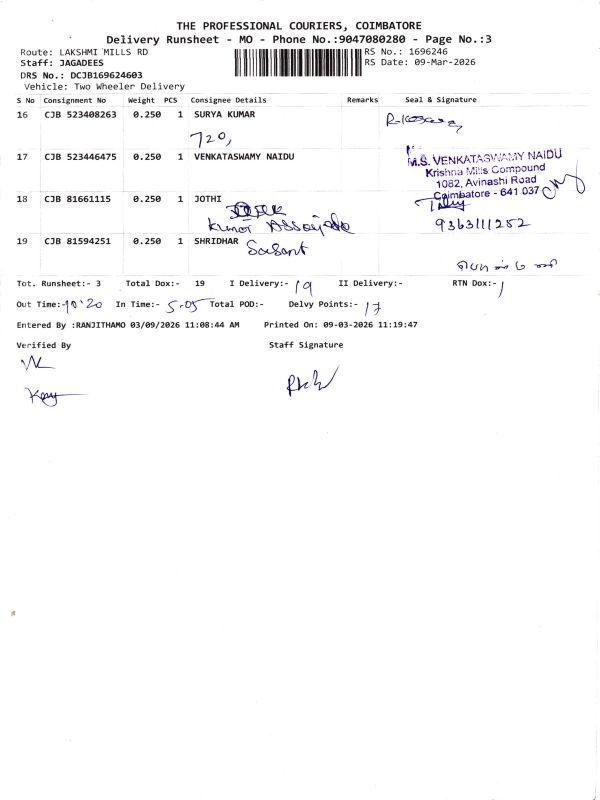 THE PROFESSIONAL COURIERS, COIMBATORE
Delivery Runsheet - MO - Phone No.:9047080280 - Page No.:3
Route: LAKSHMI MILLS RD
RS No.: 1696246
Staff: JAGADEES
RS Date: 09-Mar-2026
DRS No.: DCJB169624603
Vehicle: Two Wheeler Delivery
S No Consignment No Weight PCS Consignee Details Remarks Seal & Signature
16 CJB 523408263 0.250 1 SURYA KUMAR
720,
17 CJB 523446475 0.250 1 VENKATASWAMY NAIDU
M.S. VENKATASWAMY NAIDU
Krishna Mills Compound
1082, Avinashi Road
Coimbatore - 641 037
18 CJB 81661115 0.250 1 JOTHI
Kumar
9363111252
19 CJB 81594251 0.250 1 SHRIDHAR
Tot. Runsheet:- 3 Total Dox:- 19 I Delivery:- 19 II Delivery:- RTN Dox:-
Out Time:- 10:20 In Time:- 5-05 Total POD:- Delvy Points:- 17
Entered By :RANJITHAMO 03/09/2026 11:08:44 AM Printed On: 09-03-2026 11:19:47
Verified By Staff Signature